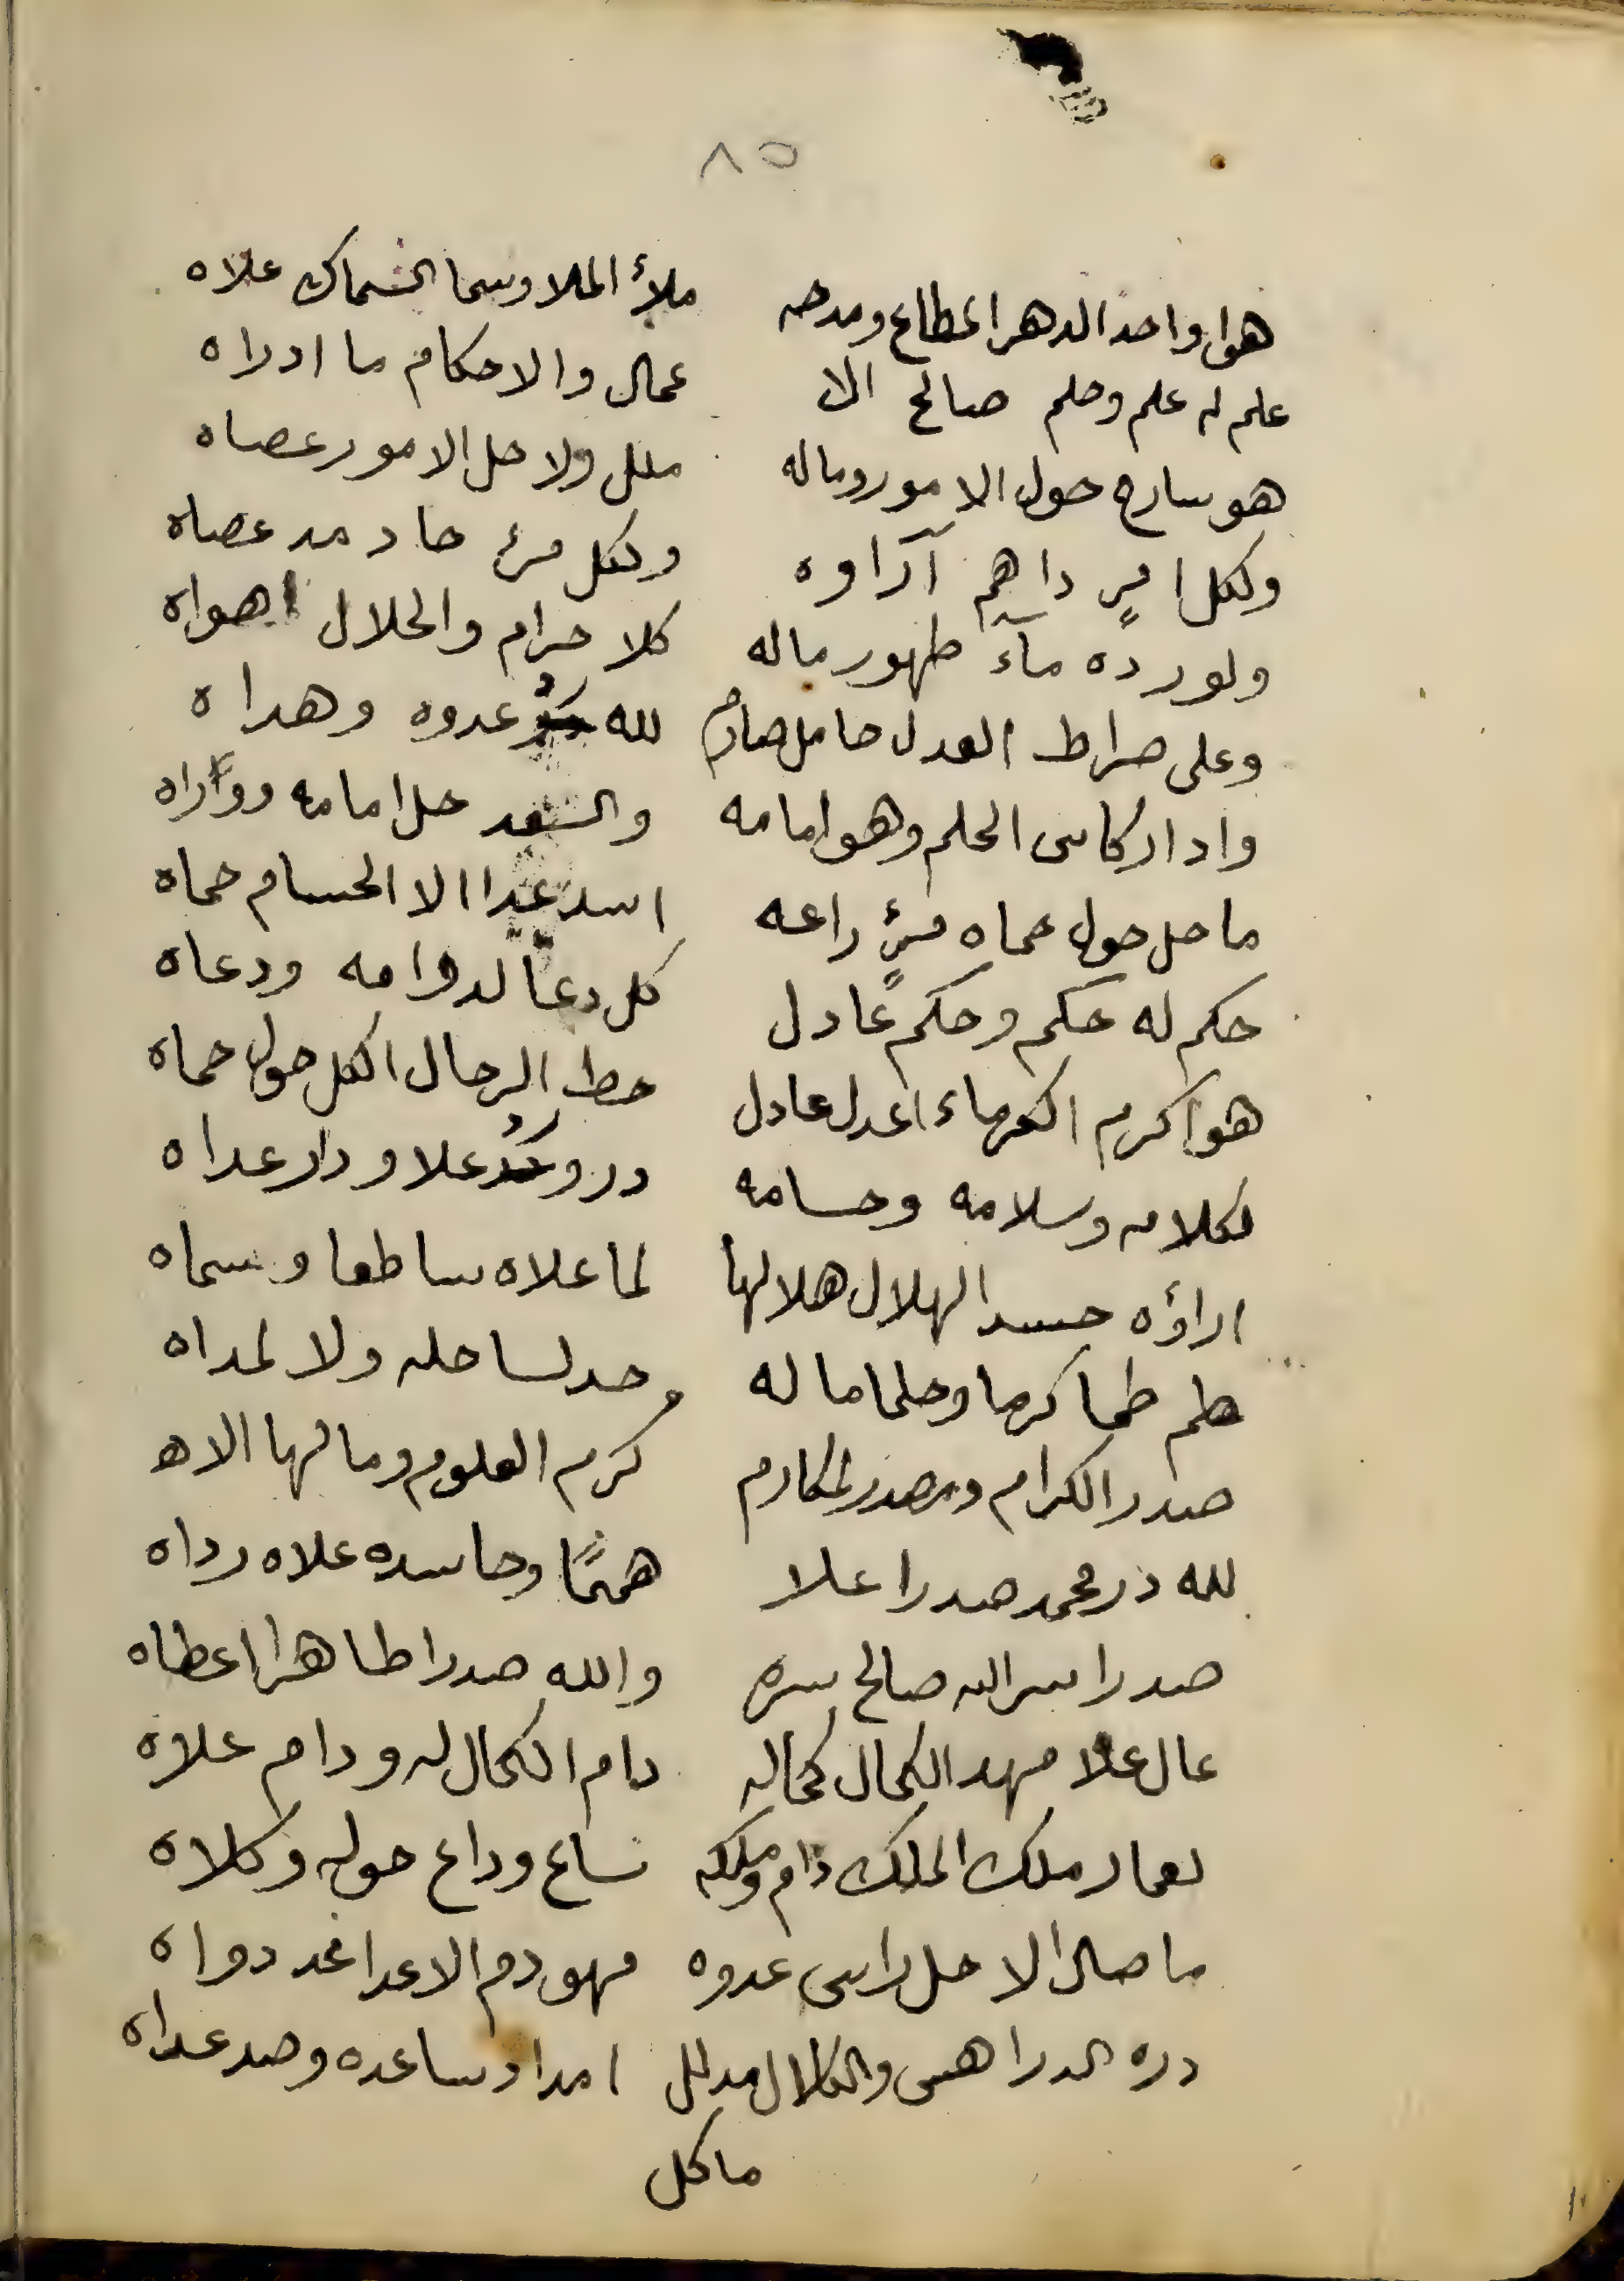 ٨٥
هو واحد الدهر المطاع ومدحه ملأ الملا وسما السماك علاه
علم له علم وحلم صالح الا عمال والاحكام ما ادراه
هو سارح حول الامور وماله ملل ولا حل الامور عصاه
ولكل امرٍ داهم آراوه ولكل مرء حاد مد عصاه
ولورده مآء طهور ماله كلا حرام والحلال اهواه
وعلى صراط العدل حامل صارم لله عدوه وهداه
وادار كاس الحلم وهو امامه والسعد حل امامه ووراه
ما حل حول حماه مرءٍ راعه اسد عدا الا الحسام حماه
حكم له حكم وحكم عادل كل دعا لدوامه ودعاه
هو اكرم الكرماء اعدل عادل حط الرحال الكل حول حماه
لكلامه وسلامه وحسامه در وعلا ودار عداه
اراؤه حسد الهلال هلالها لما علاه ساطعا وسماه
طم طما كرما وحلما ماله حد لساحله ولا لمداه
صدر الكرام ومصدر لمكارم كرم العلوم وما لها الاه
لله در محمد صدرا علا هممًا وحاسده علاه رداه
صدرا سر اله صالح سره والله صدرا طاهرا اعطاه
عال علا مهد الكمال كماله دام الكمال له ودام علاه
لعماد ملك الملك دام وملكه ساع وداع حوله وكلاه
ما صال الا حل راس عدوه مهو دم الاعدا عد دواه
دره الدراهس والكلال مدلل امداد ساعده وصد عداه
ما كل